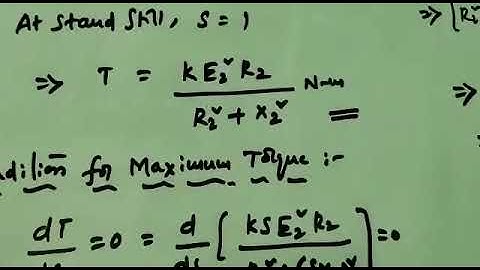 At stand still, S = 1
⇒ [R₂²
⇒ T = K E₂² R₂ / R₂² + X₂² N-m
⇒
Condition for Maximum Torque :-
dT / = 0 = d / ds [ K S E₂² R₂ / ] = 0